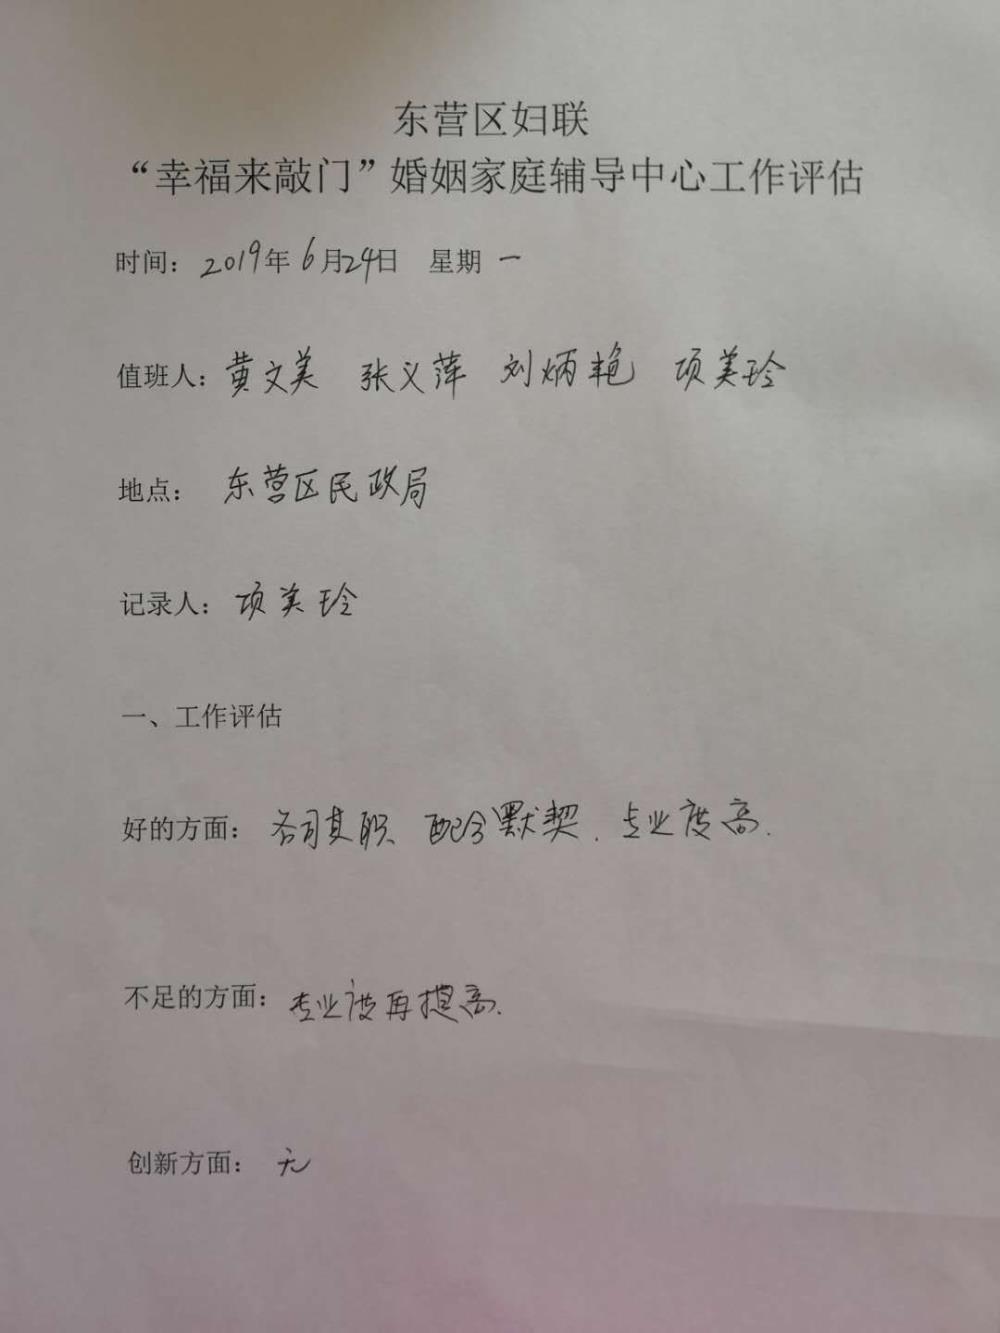 东营区妇联
“幸福来敲门”婚姻家庭辅导中心工作评估
时间：2019年6月24日 星期一
值班人：黄文美 张义萍 刘炳艳 项美玲
地点： 东营区民政局
记录人： 项美玲
一、工作评估
好的方面： 各司其职、配合默契、专业度高.
不足的方面：专业度再提高.
创新方面： 无